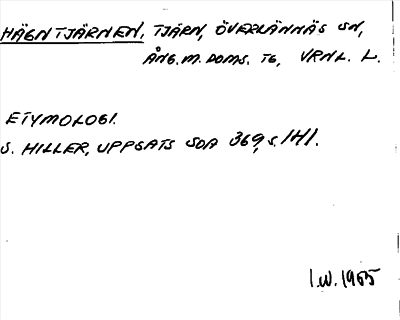 HÄGNTJÄRNEN, TJÄRN, ÖVERLÄNNÄS SN,
ÅNG. M. DOMS. TG, VRNL. L.
ETYMOLOGI.
S. HILLER, UPPSATS SOA 369, s. 141.
I.W. 1965